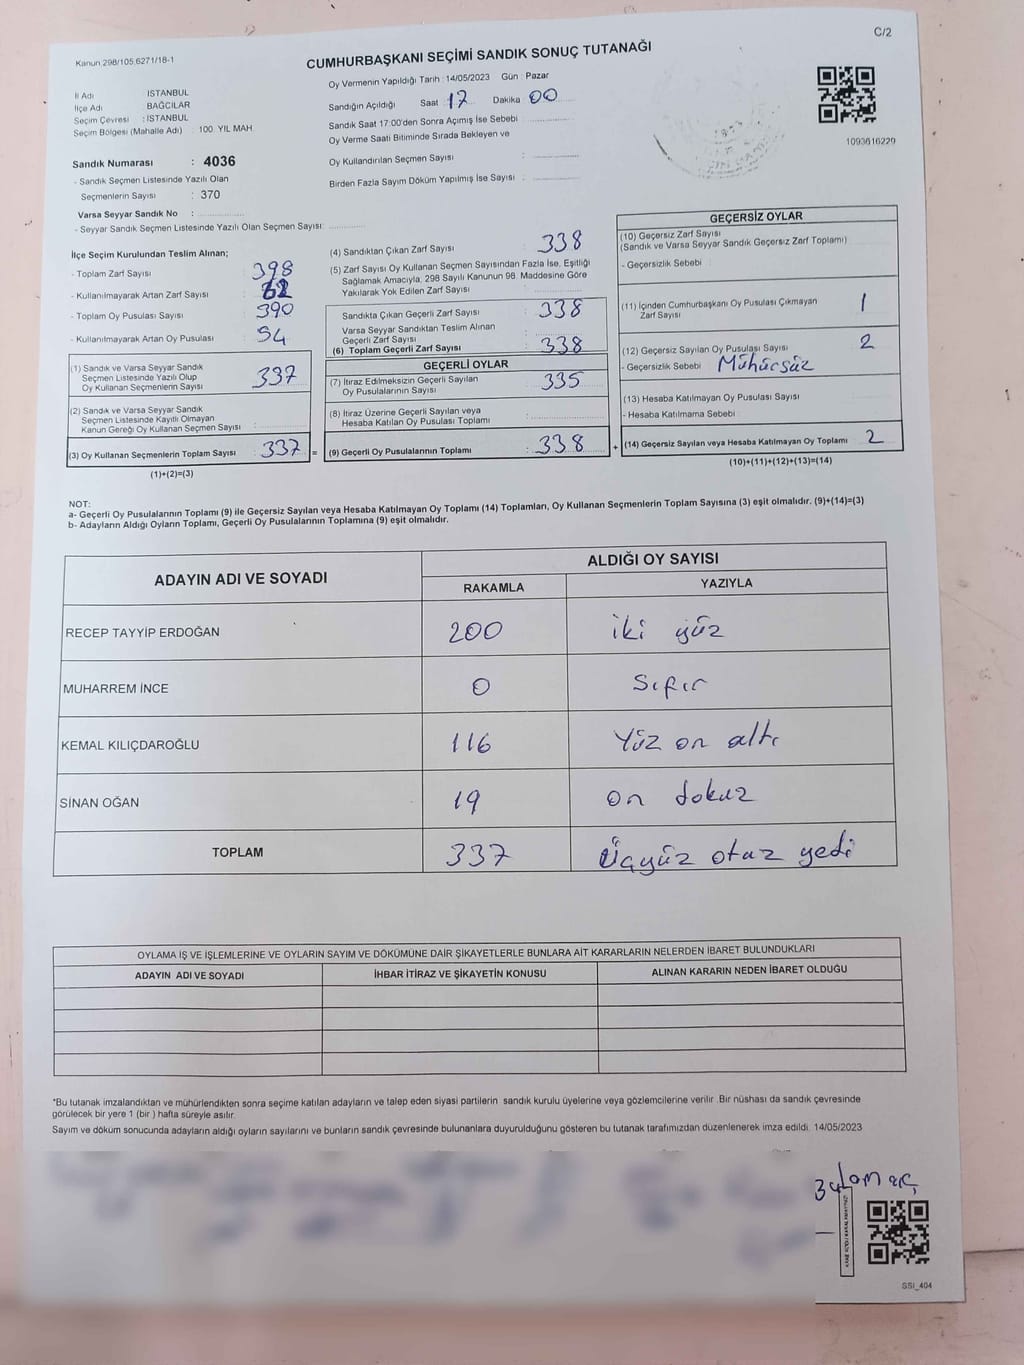 C/2
Kanun 298/105,6271/18-1
CUMHURBAŞKANI SEÇİMİ SANDIK SONUÇ TUTANAĞI
İl Adı : İSTANBUL
İlçe Adı : BAĞCILAR
Seçim Çevresi : İSTANBUL
Seçim Bölgesi (Mahalle Adı) : 100. YIL MAH.
Sandık Numarası : 4036
- Sandık Seçmen Listesinde Yazılı Olan
Seçmenlerin Sayısı : 370
Varsa Seyyar Sandık No :
- Seyyar Sandık Seçmen Listesinde Yazılı Olan Seçmen Sayısı:
Oy Vermenin Yapıldığı Tarih : 14/05/2023 Gün : Pazar
Sandığın Açıldığı Saat 17 Dakika 00
Sandık Saat 17:00'den Sonra Açımış İse Sebebi
Oy Verme Saati Bitiminde Sırada Bekleyen ve
Oy Kullandırılan Seçmen Sayısı :
Birden Fazla Sayım Döküm Yapılmış İse Sayısı :
1093616220
İlçe Seçim Kurulundan Teslim Alınan;
- Toplam Zarf Sayısı 398
- Kullanılmayarak Artan Zarf Sayısı
- Toplam Oy Pusulası Sayısı 390
- Kullanılmayarak Artan Oy Pusulası 54
(1) Sandık ve Varsa Seyyar Sandık
Seçmen Listesinde Yazılı Olup
Oy Kullanan Seçmenlerin Sayısı 337
(2) Sandık ve Varsa Seyyar Sandık
Seçmen Listesinde Kayıtlı Olmayan
Kanun Gereği Oy Kullanan Seçmen Sayısı :
(3) Oy Kullanan Seçmenlerin Toplam Sayısı : 337 =
(1)+(2)=(3)
(4) Sandıktan Çıkan Zarf Sayısı : 338
(5) Zarf Sayısı Oy Kullanan Seçmen Sayısından Fazla İse, Eşitliği
Sağlamak Amacıyla, 298 Sayılı Kanunun 98. Maddesine Göre
Yakılarak Yok Edilen Zarf Sayısı :
Sandıkta Çıkan Geçerli Zarf Sayısı : 338
Varsa Seyyar Sandıktan Teslim Alınan
Geçerli Zarf Sayısı
(6) Toplam Geçerli Zarf Sayısı : 338
GEÇERLİ OYLAR
(7) İtiraz Edilmeksizin Geçerli Sayılan
Oy Pusulalarının Sayısı : 335
(8) İtiraz Üzerine Geçerli Sayılan veya
Hesaba Katılan Oy Pusulası Toplamı :
(9) Geçerli Oy Pusulalarının Toplamı : 338 +
GEÇERSİZ OYLAR
(10) Geçersiz Zarf Sayısı
(Sandık ve Varsa Seyyar Sandık Geçersiz Zarf Toplamı)
- Geçersizlik Sebebi :
(11) İçinden Cumhurbaşkanı Oy Pusulası Çıkmayan
Zarf Sayısı 1
(12) Geçersiz Sayılan Oy Pusulası Sayısı 2
- Geçersizlik Sebebi : Mühürsüz
(13) Hesaba Katılmayan Oy Pusulası Sayısı
- Hesaba Katılmama Sebebi :
(14) Geçersiz Sayılan veya Hesaba Katılmayan Oy Toplamı 2
(10)+(11)+(12)+(13)=(14)
NOT:
a- Geçerli Oy Pusulalarının Toplamı (9) ile Geçersiz Sayılan veya Hesaba Katılmayan Oy Toplamı (14) Toplamları, Oy Kullanan Seçmenlerin Toplam Sayısına (3) eşit olmalıdır. (9)+(14)=(3)
b- Adayların Aldığı Oyların Toplamı, Geçerli Oy Pusulalarının Toplamına (9) eşit olmalıdır.
ADAYIN ADI VE SOYADI ALDIĞI OY SAYISI
RAKAMLA YAZIYLA
RECEP TAYYİP ERDOĞAN 200 iki yüz
MUHARREM İNCE 0 Sıfır
KEMAL KILIÇDAROĞLU 116 Yüz on altı
SİNAN OĞAN 19 on dokuz
TOPLAM 337 Üçyüz otuz yedi
OYLAMA İŞ VE İŞLEMLERİNE VE OYLARIN SAYIM VE DÖKÜMÜNE DAİR ŞİKAYETLERLE BUNLARA AİT KARARLARIN NELERDEN İBARET BULUNDUKLARI
ADAYIN ADI VE SOYADI İHBAR İTİRAZ VE ŞİKAYETİN KONUSU ALINAN KARARIN NEDEN İBARET OLDUĞU
*Bu tutanak imzalandıktan ve mühürlendikten sonra seçime katılan adayların ve talep eden siyasi partilerin sandık kurulu üyelerine veya gözlemcilerine verilir .Bir nüshası da sandık çevresinde
görülecek bir yere 1 (bir ) hafta süreyle asılır.
Sayım ve döküm sonucunda adayların aldığı oyların sayılarını ve bunların sandık çevresinde bulunanlara duyurulduğunu gösteren bu tutanak tarafımızdan düzenlenerek imza edildi. 14/05/2023
SSI_404